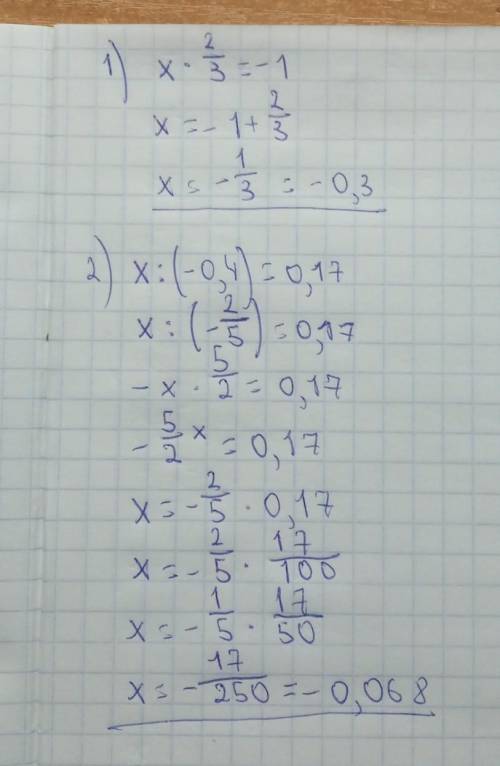 1) x · 2/3 = -1
x = -1 + 2/3
x = -1/3 = -0,3
2) x : (-0,4) = 0,17
x : (-2/5) = 0,17
-x · 5/2 = 0,17
-5/2 x = 0,17
x = -2/5 · 0,17
x = -2/5 · 17/100
x = -1/5 · 17/50
x = -17/250 = -0,068